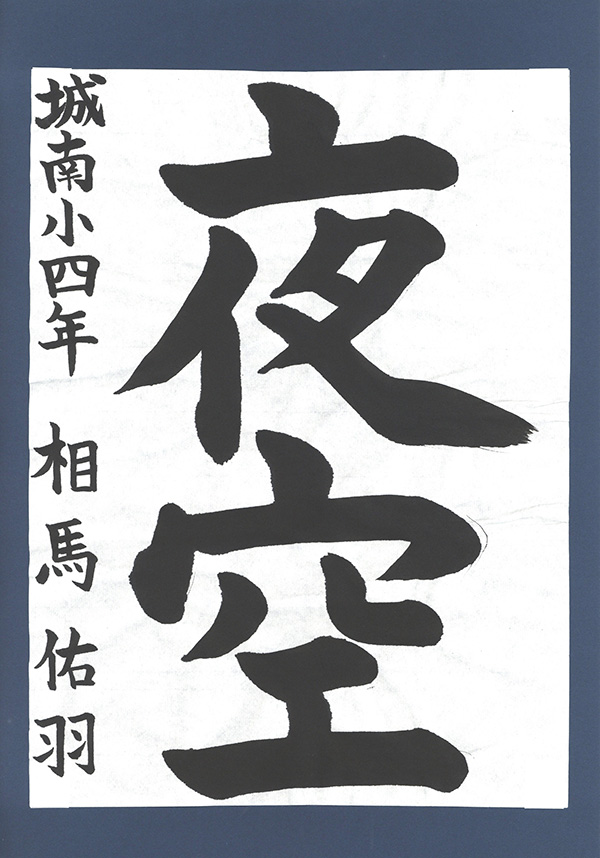 夜空
城南小四年 相馬佑羽